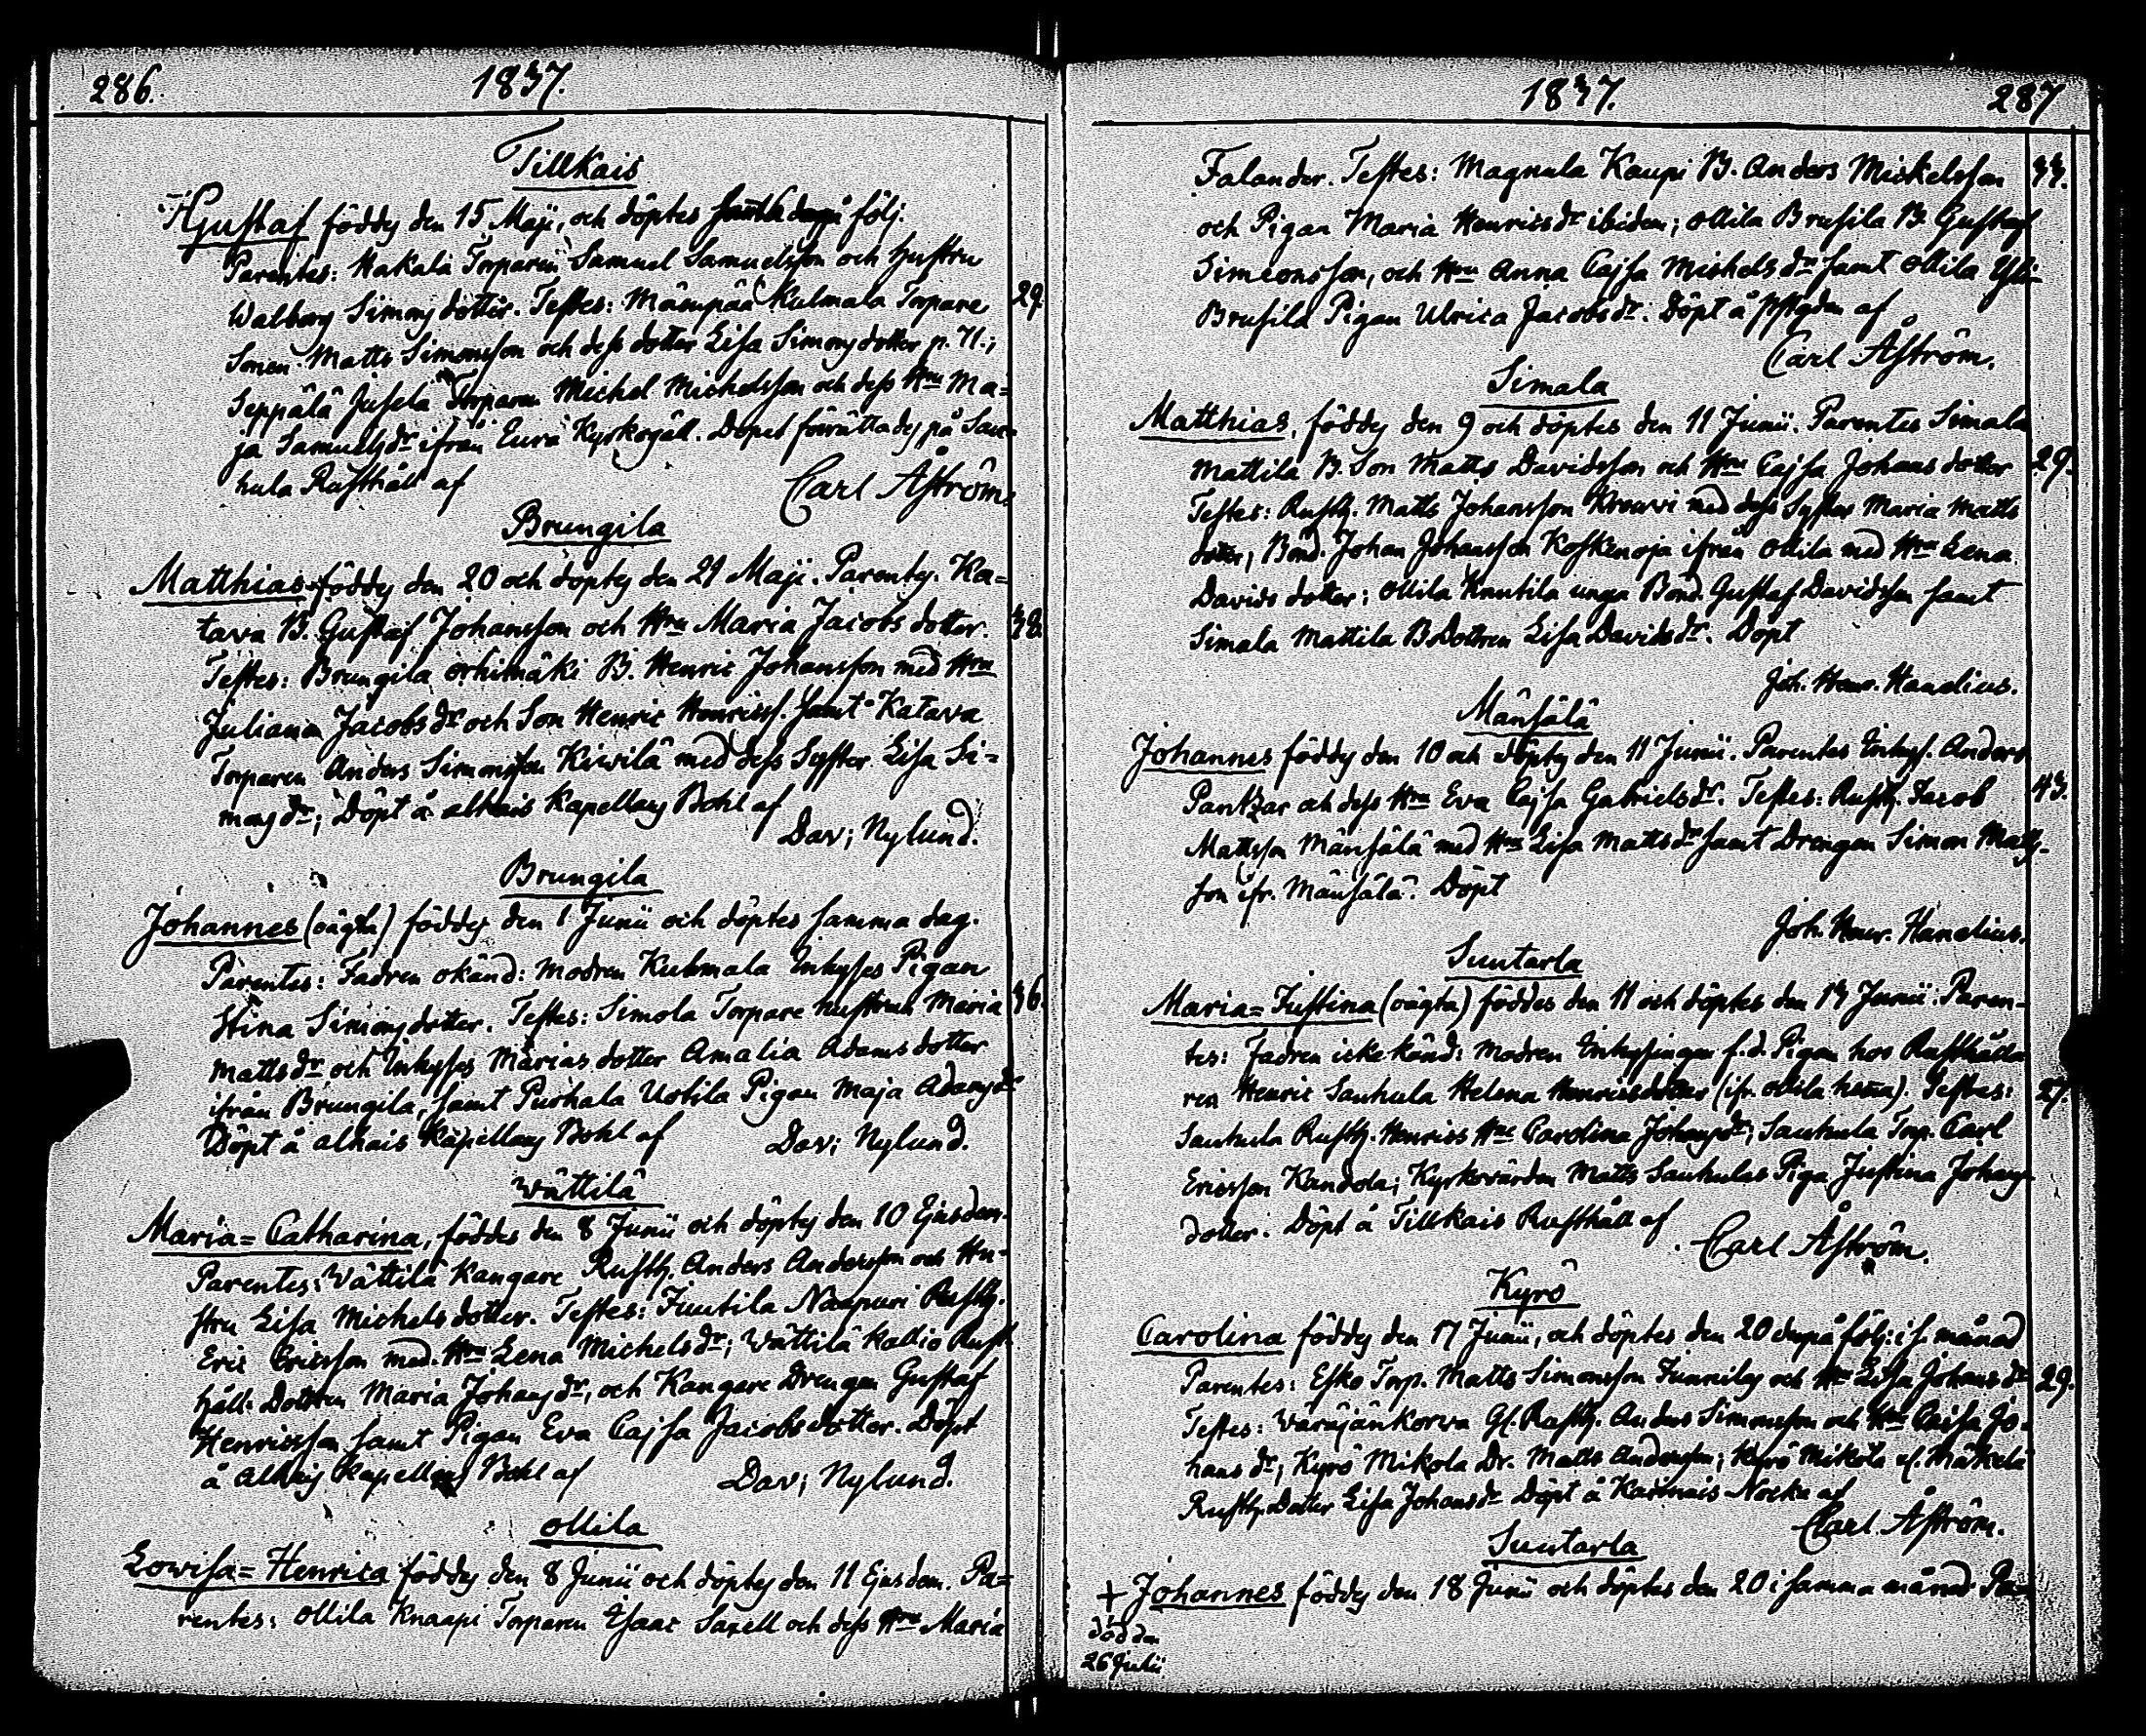 286.
1837.
Tillkais
Gustaf föddes den 15 Maji, och döptes följ.
Parentes: Kakala Torparen Samuel Samuelsson och hustru
Walborg Simonsdotter. Testes: Kulmala Torpare 29
Sonen Matts Simonsson och dess dotter Lisa Simonsdotter
Seppälä Jusela Torparen Michel Michelsson och dess Hru Ma=
ja Samuelsdr ifrån Eura Kyrkogäll. Dopet förrättades på Sau=
hula Rusthåll af Carl Åström.
Brungila
Matthias föddes den 20 och döptes den 21 Maji. Parentes. Ka=
tava B. Gustaf Johansson och Hru Maria Jacobs dotter. 38.
Testes: Brungila orhimäki B. Henric Johansson med Hru
Juliana Jacobs dr och Son Henric Henricss. samt Katava
Torparen Anders Simonsson Kiwilä med dess Syster Lisa Si=
mons dr; Döpt å alhais Kapellans Bohl af
Dav; Nylund.
Brungila
Johannes (oägta) föddes den 1 Junii och döptes samma dag.
Parentes: Fadren okänd: modren Kulmala Inhyses Pigan
Stina Simonsdotter. Testes: Simola Torpare hustrun Maria 36.
Mattsdr och Inhyses Marias dotter Amalia Adams dotter
ifrån Brungila, samt Purhala Uotila Pigan Maja Adamsdr
Döpt å alhais Kapellans Bohl af Dav; Nylund.
Wättilä
Maria=Catharina, föddes den 8 Junii och döptes den 10 Ejusdem.
Parentes: Wättilä Kangare Rusth. Anders Andersson och Hu=
stru Lisa Michels dotter. Testes: Juutila Naapuri Rusth.
Eric Ericsson med. Hru Lena Michels dr; Wättilä Kallio Rust
håll. Dottren Maria Johans dr, och Kangare Drengen Gustaf
Henricsson samt Pigan Eva Cajsa Jacobs dotter. Döpt
å Alhais Kapellans Bohl af Dav; Nylund.
ollila
Lowisa=Henrica föddes den 8 Junii och döptes den 11 Ejusdem. Pa=
rentes: ollila Knaapi Torparen Isaac Saxell och dess Hru Maria
1837.
287
Falander. Testes: Magnula Kaupi B. Anders Mickelsson 33.
och Pigan Maria Henricsdr ibidem; ollila Brusila B. Gustaf
Simeonsson, och Hru Anna Cajsa Michels dr samt ollila Yli=
Brusila Pigan Ulrica Jacobsdr. Döpt å af
Carl Åström.
Simala
Matthias, föddes den 9 och döptes den 11 Junii. Parentes Simala
Mattila B. Son Matts Davidsson och Hru Cajsa Johans dotter 29.
Testes: Rusth. Matts Johansson Krouvi med dess Syster Maria Matts
dotter, Bond. Johan Johansson Koskenoja ifrån ollila med Hru Lena
Davids dotter; ollila Knutila unga Bond. Gustaf Davidsson samt
Simala Mattila B Dottren Lisa Davidsdr. Döpt
Joh. Henr. Hanelius.
Mänsälä
Johannes föddes den 10 och döptes den 11 Junii. Parentes Inhys. Anders
Pantzar och dess Hru Eva Cajsa Gabrielsdr. Testes: Rusth. Jacob 43.
Mattsson Mänsälä med Hru Lisa Mattsdr samt Drengen Simon Matts=
son ifr. Mänsälä. Döpt
Joh. Henr. Hanelius.
Suutarla
Maria=Justina (oägta) föddes den 11 och döptes den 13 Junii. Paren=
tes: Fadren icke känd: modren Inhysingen f.d. Pigan hos Rusthålla
ren Henric Sauhula Helena Henricsdotter (ifr. ollila hema). Testes: 27.
Sauhula Rusth. Henrics Hru Carolina Johansdr; Sauhula Torp. Carl
Ericsson Kandola; Kyrkovärden Matts Sauhulas Piga Justina Johans
dotter. Döpt å Tillkais Rusthåll af Carl Åström.
Kyrö
Carolina föddes den 17 Junii, och döptes den 20 derpå följ: i s. månad
Parentes: Esko Torp. Matts Simonsson och Hru Lisa Johans dr 29.
Testes: Wäräjänkorva Gl. Rusth. Anders Simonsson och Hru Caisa Jo=
hans dr; Kyrö Mikola Dr. Matts Andersson; Kyrö Mikola el. Mäkelä
Rusth. Dotter Lisa Johansdr Döpt å af
Carl Åström.
Suutarla
+ Johannes föddes den 18 Junii och döptes den 20 i samma månad Pa=
död den
26 Julii